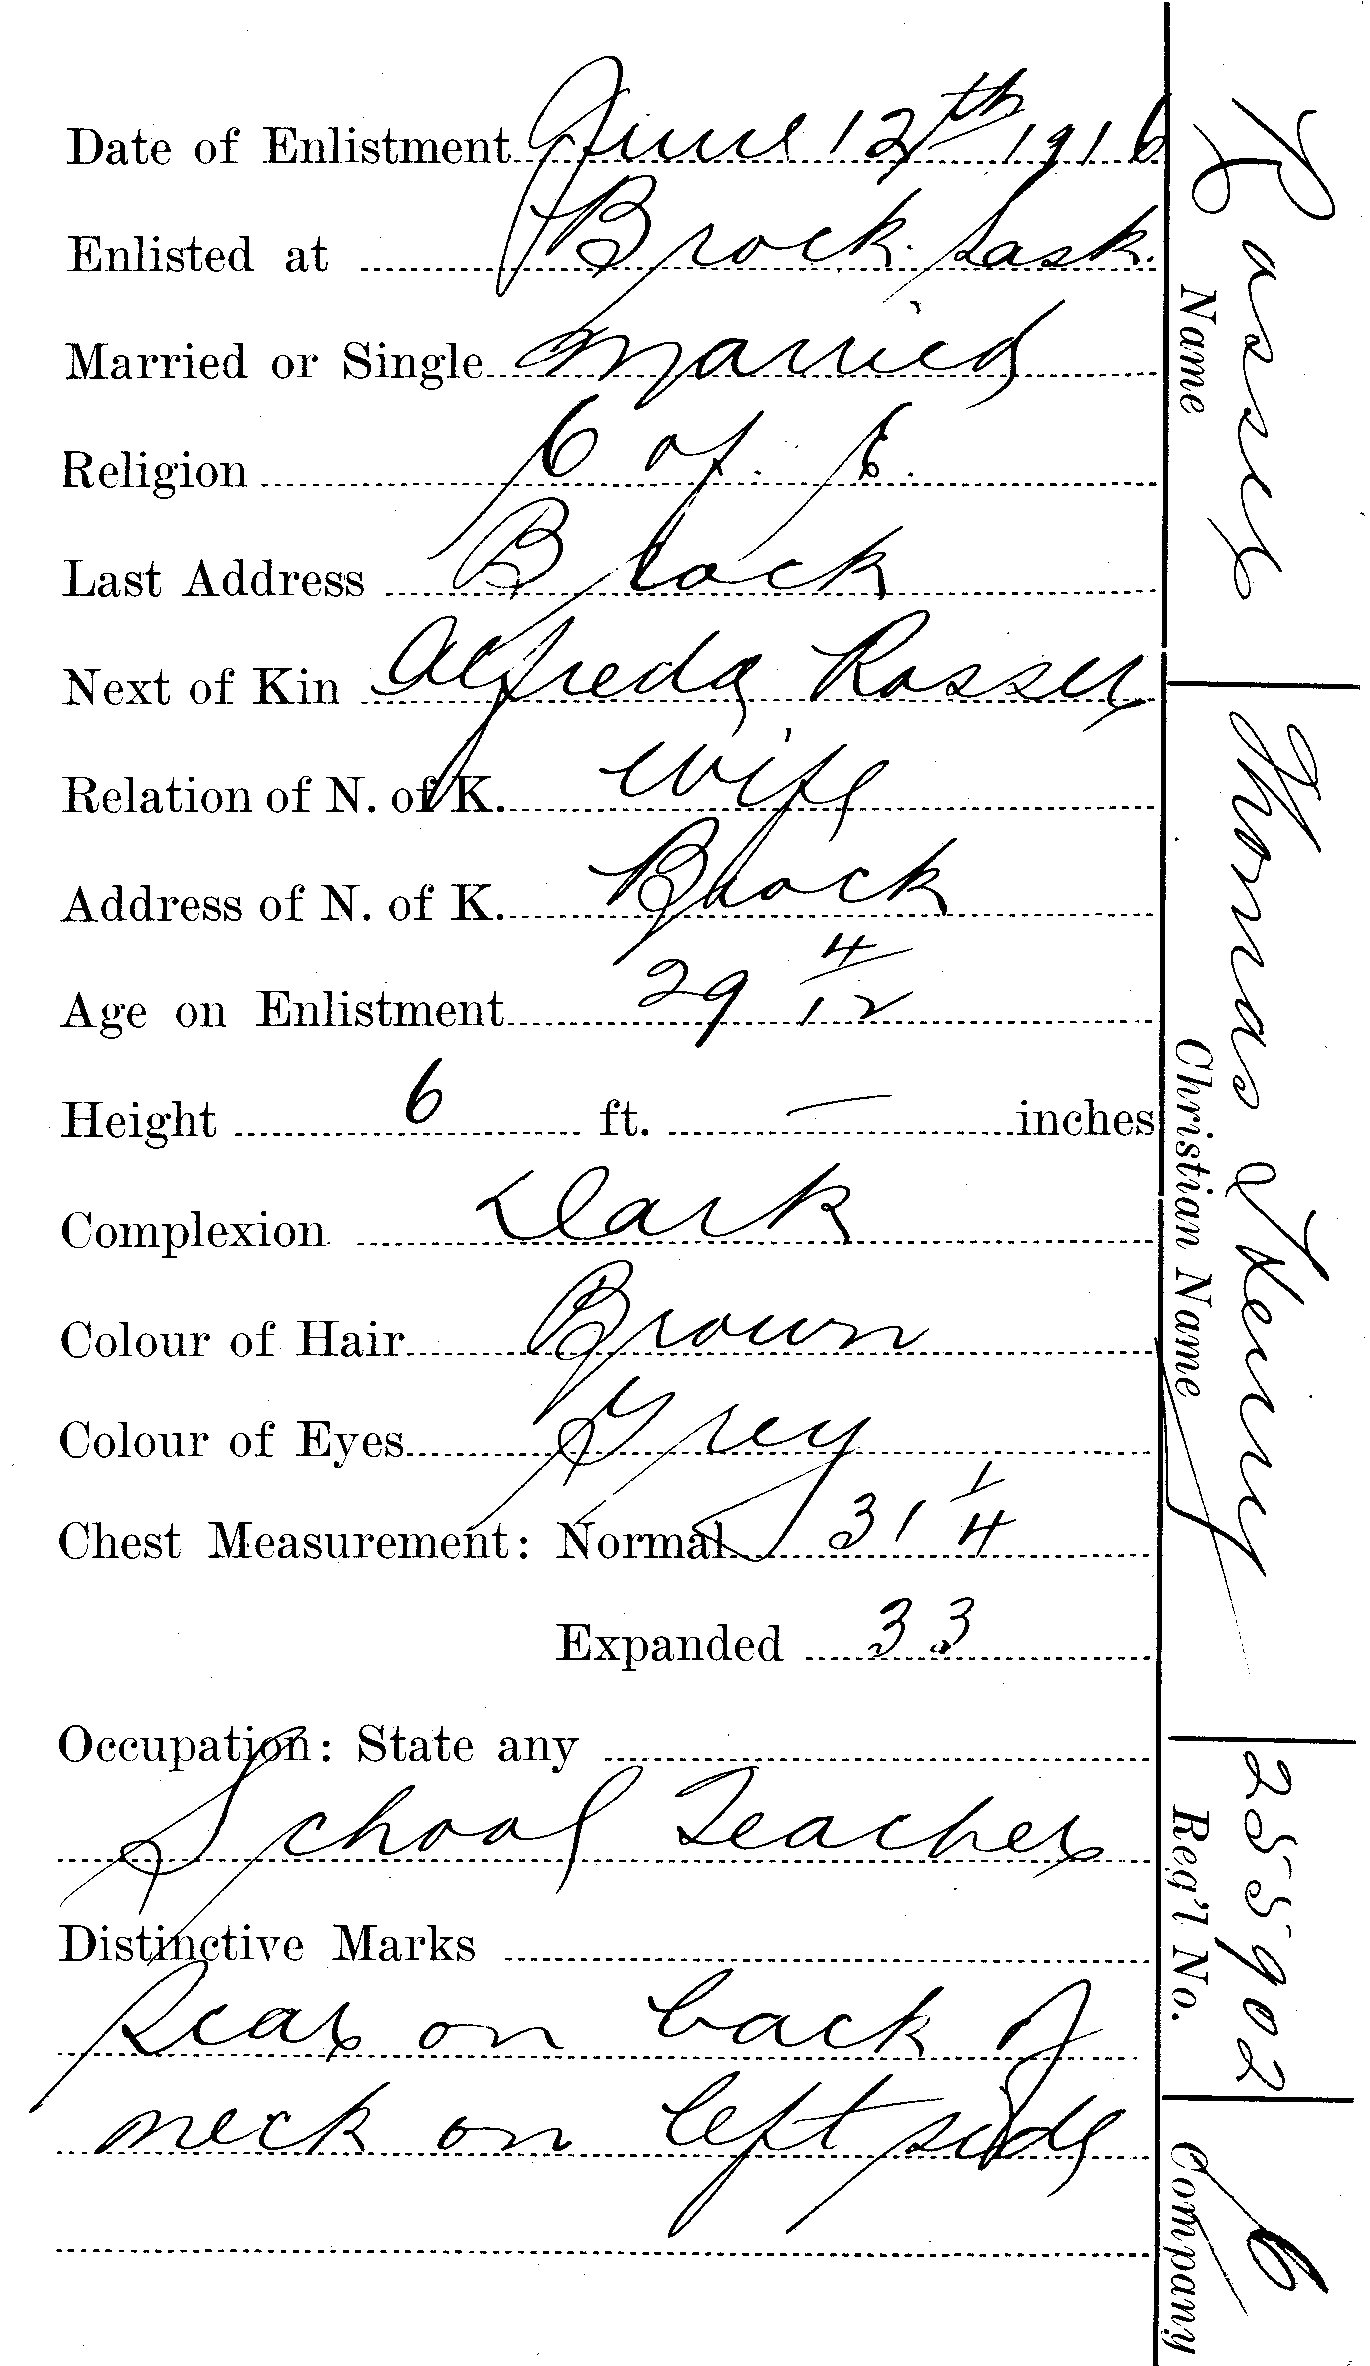 Date of Enlistment June 12th 1916
Enlisted at Brock. Sask.
Married or Single Married
Religion C of. E.
Last Address Brock
Next of Kin Alfreda Rosser
Relation of N. of K. Wife
Address of N. of K. Brock
Age on Enlistment 29 4/12
Height 6 ft. — inches
Complexion Dark
Colour of Hair Brown
Colour of Eyes Grey
Chest Measurement: Normal 31 1/4
Expanded 33
Occupation: State any
School Teacher
Distinctive Marks
Scar on back of
neck on left side
Rosser Thomas Henry 255902 C
Name Christian Name Reg'l No. Company